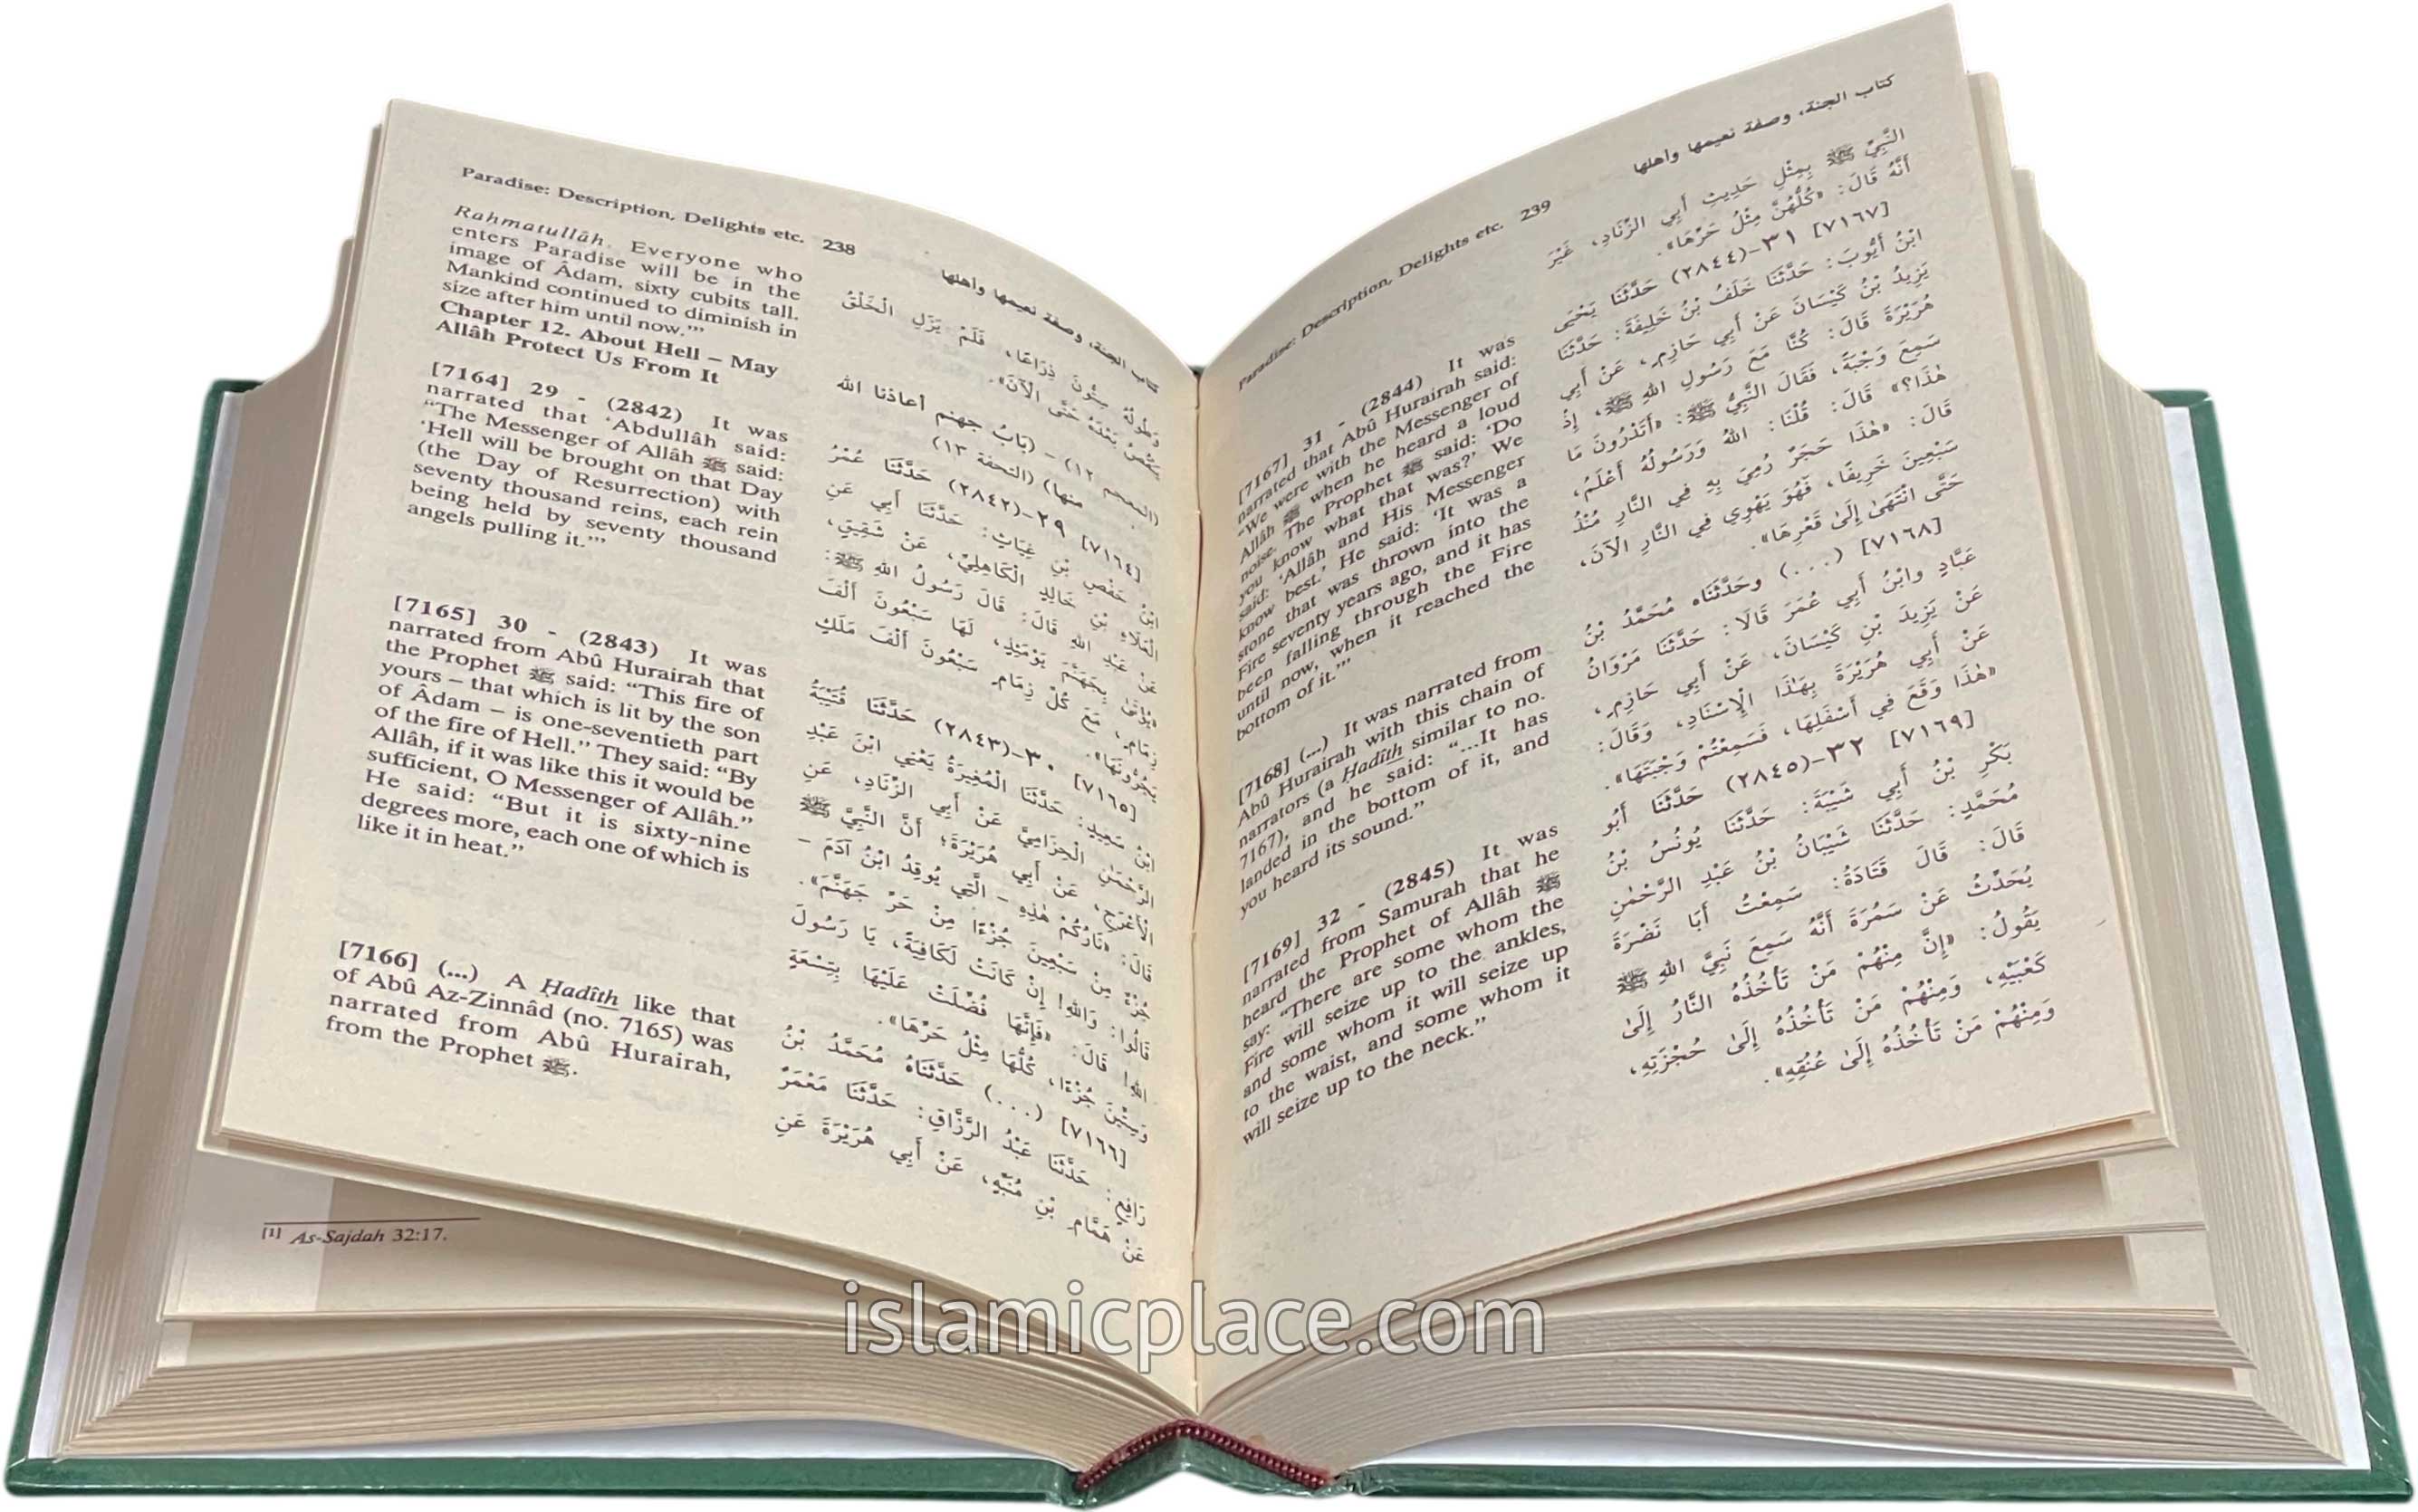 Paradise: Description, Delights etc. 238
كتاب الجنة، وصفة نعيمها وأهلها
Rahmatullâh. Everyone who
enters Paradise will be in the
image of Âdam, sixty cubits tall.
Mankind continued to diminish in
size after him until now.’”
Chapter 12. About Hell – May
Allâh Protect Us From It
[7164] 29 - (2842) It was
narrated that ‘Abdullâh said:
“The Messenger of Allâh ﷺ said:
‘Hell will be brought on that Day
(the Day of Resurrection) with
seventy thousand reins, each rein
being held by seventy thousand
angels pulling it.’”
[7165] 30 - (2843) It was
narrated from Abû Hurairah that
the Prophet ﷺ said: “This fire of
yours – that which is lit by the son
of Âdam – is one-seventieth part
of the fire of Hell.” They said: “By
Allâh, if it was like this it would be
sufficient, O Messenger of Allâh.”
He said: “But it is sixty-nine
degrees more, each one of which is
like it in heat.”
[7166] (...) A Ḥadîth like that
of Abû Az-Zinnâd (no. 7165) was
narrated from Abû Hurairah,
from the Prophet ﷺ.
وَطُولُهُ سِتُّونَ ذِرَاعًا، فَلَمْ يَزَلِ الْخَلْقُ
يَنْقُصُ بَعْدَهُ حَتَّى الْآنَ».
(المعجم ١٢) – (بَابُ جهنم أعاذنا الله
منها) (التحفة ١٣)
[٧١٦٤] ٢٩-(٢٨٤٢) حَدَّثَنَا عُمَرُ
ابْنُ حَفْصِ بْنِ غِيَاثٍ: حَدَّثَنَا أَبِي عَنِ
الْعَلَاءِ بْنِ خَالِدٍ الْكَاهِلِيِّ، عَنْ شَقِيقٍ،
عَنْ عَبْدِ اللهِ قَالَ: قَالَ رَسُولُ اللهِ ﷺ:
«يُؤْتَىٰ بِجَهَنَّمَ يَوْمَئِذٍ، لَهَا سَبْعُونَ أَلْفَ
زِمَامٍ، مَعَ كُلِّ زِمَامٍ سَبْعُونَ أَلْفَ مَلَكٍ
يَجُرُّونَهَا».
[٧١٦٥] ٣٠-(٢٨٤٣) حَدَّثَنَا قُتَيْبَةُ
ابْنُ سَعِيدٍ: حَدَّثَنَا الْمُغِيرَةُ يَعْنِي ابْنَ عَبْدِ
الرَّحْمٰنِ الْحِزَامِيَّ عَنْ أَبِي الزِّنَادِ، عَنِ
الْأَعْرَجِ، عَنْ أَبِي هُرَيْرَةَ؛ أَنَّ النَّبِيَّ ﷺ
قَالَ: «نَارُكُمْ هٰذِهِ – الَّتِي يُوقِدُ ابْنُ آدَمَ –
جُزْءٌ مِنْ سَبْعِينَ جُزْءًا مِنْ حَرِّ جَهَنَّمَ».
قَالُوا: وَاللهِ! إِنْ كَانَتْ لَكَافِيَةً، يَا رَسُولَ
اللهِ! قَالَ: «فَإِنَّهَا فُضِّلَتْ عَلَيْهَا بِتِسْعَةٍ
وَسِتِّينَ جُزْءًا، كُلُّهَا مِثْلُ حَرِّهَا».
[٧١٦٦] (...) حَدَّثَنَاهُ مُحَمَّدُ بْنُ
رَافِعٍ: حَدَّثَنَا عَبْدُ الرَّزَّاقِ: حَدَّثَنَا مَعْمَرٌ
عَنْ هَمَّامِ بْنِ مُنَبِّهٍ، عَنْ أَبِي هُرَيْرَةَ عَنِ
[1] As-Sajdah 32:17.
Paradise: Description, Delights etc. 239
كتاب الجنة، وصفة نعيمها وأهلها
[7167] 31 - (2844) It was
narrated that Abû Hurairah said:
“We were with the Messenger of
Allâh ﷺ when he heard a loud
noise. The Prophet ﷺ said: ‘Do
you know what that was?’ We
said: ‘Allâh and His Messenger
know best.’ He said: ‘It was a
stone that was thrown into the
Fire seventy years ago, and it has
been falling through the Fire
until now, when it reached the
bottom of it.’”
[7168] (...) It was narrated from
Abû Hurairah with this chain of
narrators (a Ḥadîth similar to no.
7167), and he said: “...It has
landed in the bottom of it, and
you heard its sound.”
[7169] 32 - (2845) It was
narrated from Samurah that he
heard the Prophet of Allâh ﷺ
say: “There are some whom the
Fire will seize up to the ankles,
and some whom it will seize up
to the waist, and some whom it
will seize up to the neck.”
النَّبِيِّ ﷺ بِمِثْلِ حَدِيثِ أَبِي الزِّنَادِ، غَيْرَ
أَنَّهُ قَالَ: «كُلُّهُنَّ مِثْلُ حَرِّهَا».
[٧١٦٧] ٣١-(٢٨٤٤) حَدَّثَنَا يَحْيَى
ابْنُ أَيُّوبَ: حَدَّثَنَا خَلَفُ بْنُ خَلِيفَةَ: حَدَّثَنَا
يَزِيدُ بْنُ كَيْسَانَ عَنْ أَبِي حَازِمٍ، عَنْ أَبِي
هُرَيْرَةَ قَالَ: كُنَّا مَعَ رَسُولِ اللهِ ﷺ، إِذْ
سَمِعَ وَجْبَةً، فَقَالَ النَّبِيُّ ﷺ: «أَتَدْرُونَ مَا
هٰذَا؟» قَالَ: قُلْنَا: اللهُ وَرَسُولُهُ أَعْلَمُ،
قَالَ: «هٰذَا حَجَرٌ رُمِيَ بِهِ فِي النَّارِ مُنْذُ
سَبْعِينَ خَرِيفًا، فَهُوَ يَهْوِي فِي النَّارِ الْآنَ،
حَتَّى انْتَهَىٰ إِلَىٰ قَعْرِهَا».
[٧١٦٨] (...) وحَدَّثَنَاه مُحَمَّدُ بْنُ
عَبَّادٍ وابْنُ أَبِي عُمَرَ قَالَا: حَدَّثَنَا مَرْوَانُ
عَنْ يَزِيدَ بْنِ كَيْسَانَ، عَنْ أَبِي حَازِمٍ،
عَنْ أَبِي هُرَيْرَةَ بِهٰذَا الْإِسْنَادِ، وَقَالَ:
«هٰذَا وَقَعَ فِي أَسْفَلِهَا، فَسَمِعْتُمْ وَجْبَتَهَا».
[٧١٦٩] ٣٢-(٢٨٤٥) حَدَّثَنَا أَبُو
بَكْرِ بْنُ أَبِي شَيْبَةَ: حَدَّثَنَا يُونُسُ بْنُ
مُحَمَّدٍ: حَدَّثَنَا شَيْبَانُ بْنُ عَبْدِ الرَّحْمٰنِ
قَالَ: قَالَ قَتَادَةُ: سَمِعْتُ أَبَا نَضْرَةَ
يُحَدِّثُ عَنْ سَمُرَةَ أَنَّهُ سَمِعَ نَبِيَّ اللهِ ﷺ
يَقُولُ: «إِنَّ مِنْهُمْ مَنْ تَأْخُذُهُ النَّارُ إِلَىٰ
كَعْبَيْهِ، وَمِنْهُمْ مَنْ تَأْخُذُهُ إِلَىٰ حُجْزَتِهِ،
وَمِنْهُمْ مَنْ تَأْخُذُهُ إِلَىٰ عُنُقِهِ».
islamicplace.com